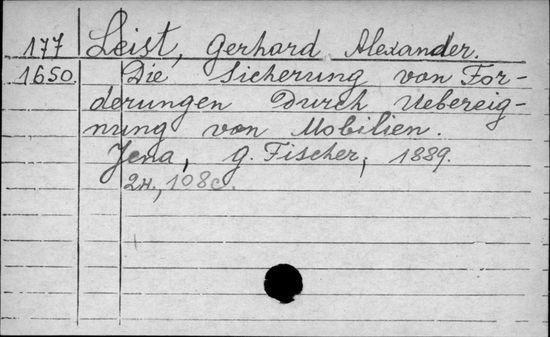 177 Leist, Gerhard Alexander.
1650. Die Sicherung von For-
derungen durch Uebereig-
nung von Mobilien.
Jena, G. Fischer, 1889.
2н., 108с.